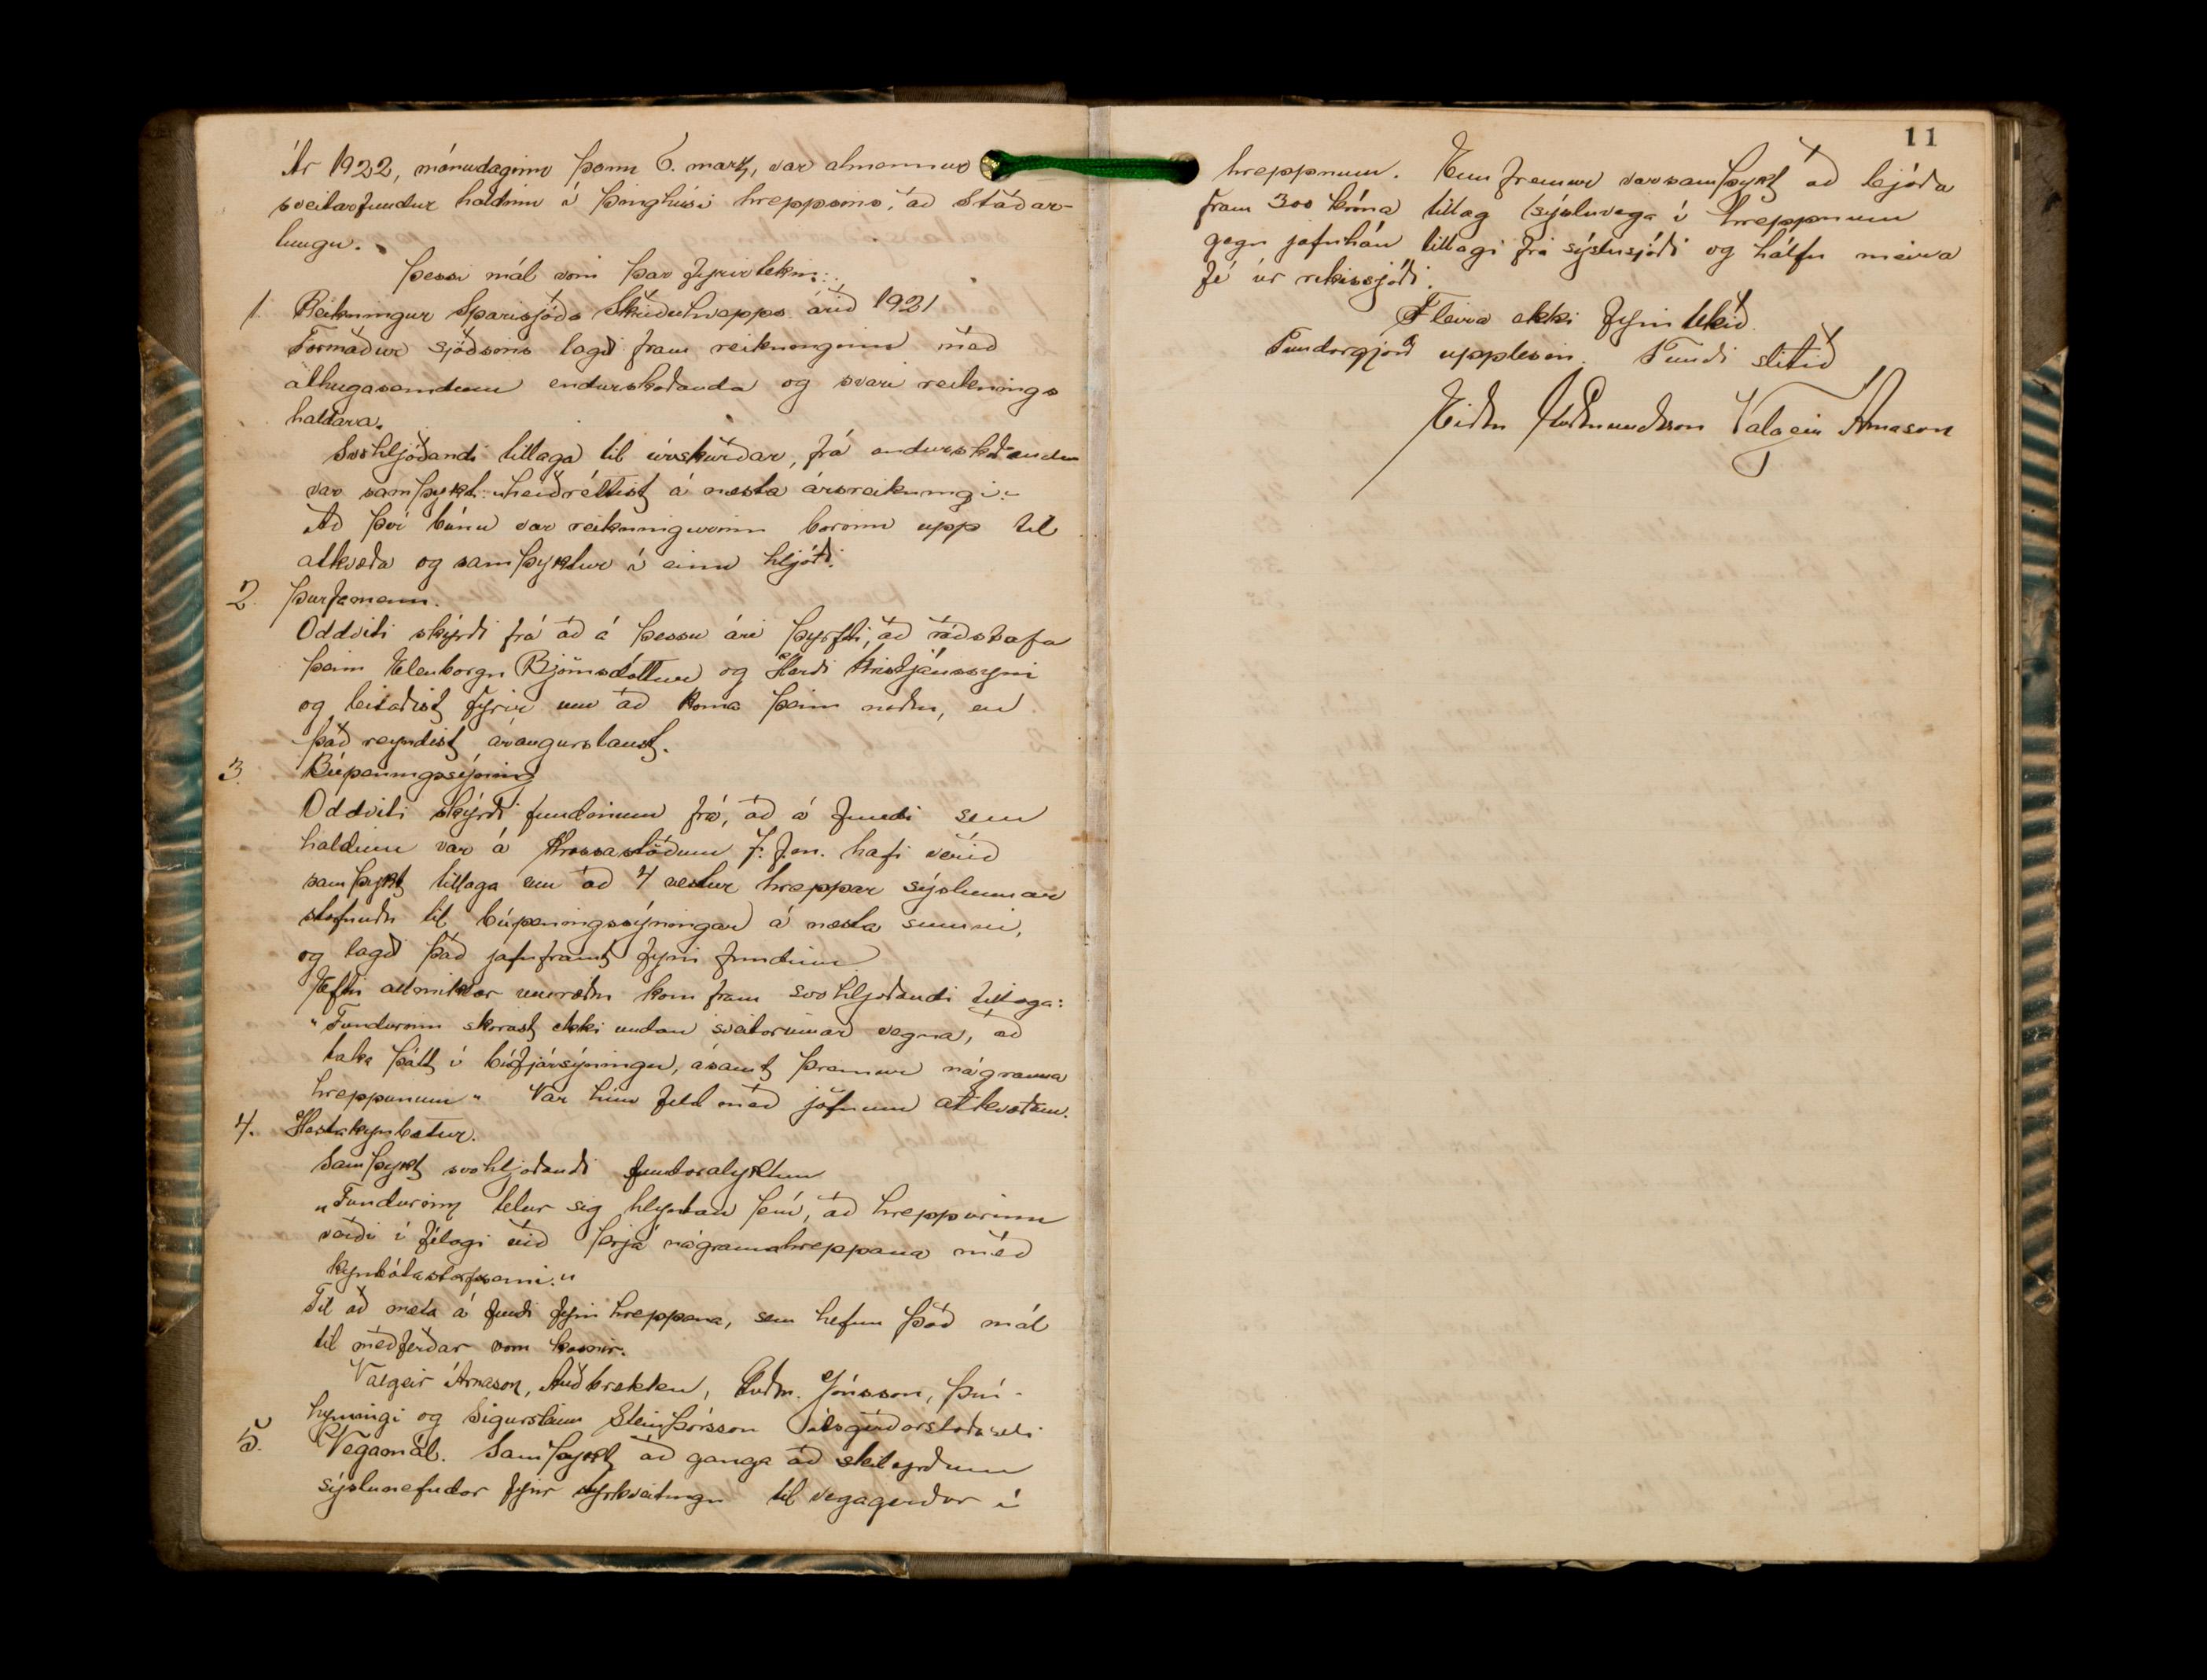 Ár 1922, mánudaginn þann 6. marz, var almennur
sveitarfundur haldinn í þinghúsi hreppsins, að Staðar-
tungu.
Þessi mál voru þar fyrirtekin:
1. Reikningur Sparisjóðs Skriðuhrepps árið 1921
Formaður sjóðsins lagði fram reikninginn með
athugasemdum endurskoðanda og svari reiknings
haldara.
Svohljóðandi tillaga til úrskurðar, frá endurskoðendum
var samþykt: „leiðréttist á næsta ársreikningi“
Að því búnu var reikningurinn borinn upp til
atkvæða og samþyktur í einu hljóði.
2. Þurfamenn.
Oddviti skýrði frá að á þessu ári þyrfti, að ráðstafa
þeim Elenborgu Björnsdóttur og Herði Kristjánssyni
og leitaðist fyrir um að koma þeim niður, en
það reyndist árangurslaust.
3. Búpeningssýning
Oddviti skýrði fundinum frá, að á fundi sem
haldinn var á Þrasastöðum f. f. m. hafi verið
samþykt tillaga um að 4 vestur hreppar sýslunnar
stofnuðu til búpeningssýningar á næsta sumri,
og lagði það jafnframt fyrir fundinn
Eftir allmiklar umræður kom fram svohljóðandi tillaga:
„Fundurinn skorast ekki undan sveitarinnar vegna, að
taka þátt í búfjársýningu, ásamt þremur nágranna
hreppunum“ Var hún feld með jöfnum atkvæðum.
4. Hestakynbætur.
Samþykt svohljóðandi fundarályktun
„Fundurinn telur sig hlyntan því, að hreppurinn
verði í félagi við þrjá nágrannahreppana með
kynbótastarfsemi.“
Til að mæta á fundi fyrir hreppana, sem hefur það mál
til meðferðar voru kosnir.
Valgeir Árnason, Auðbrekku, Guðm. Jónsson, Þrí-
hyrningi og Sigursteinn Steinþórsson
5. Vegamál. Samþykt að ganga að skilyrðum
sýslunefndar fyrir styrkveitingu til vegagerðar í
11
hreppnum. Enn fremur var samþykt að bjóða
fram 300 króna tillag sýsluvega í hreppnum
gegn jafnháu tillagi frá sýslusjóði og hálfu meira
fé úr rikissjóði.
Fleira ekki fyrirtekið.
Fundargjörð upplesin. Fundi slitið
Eiður Guðmundsson Valgeir Árnason